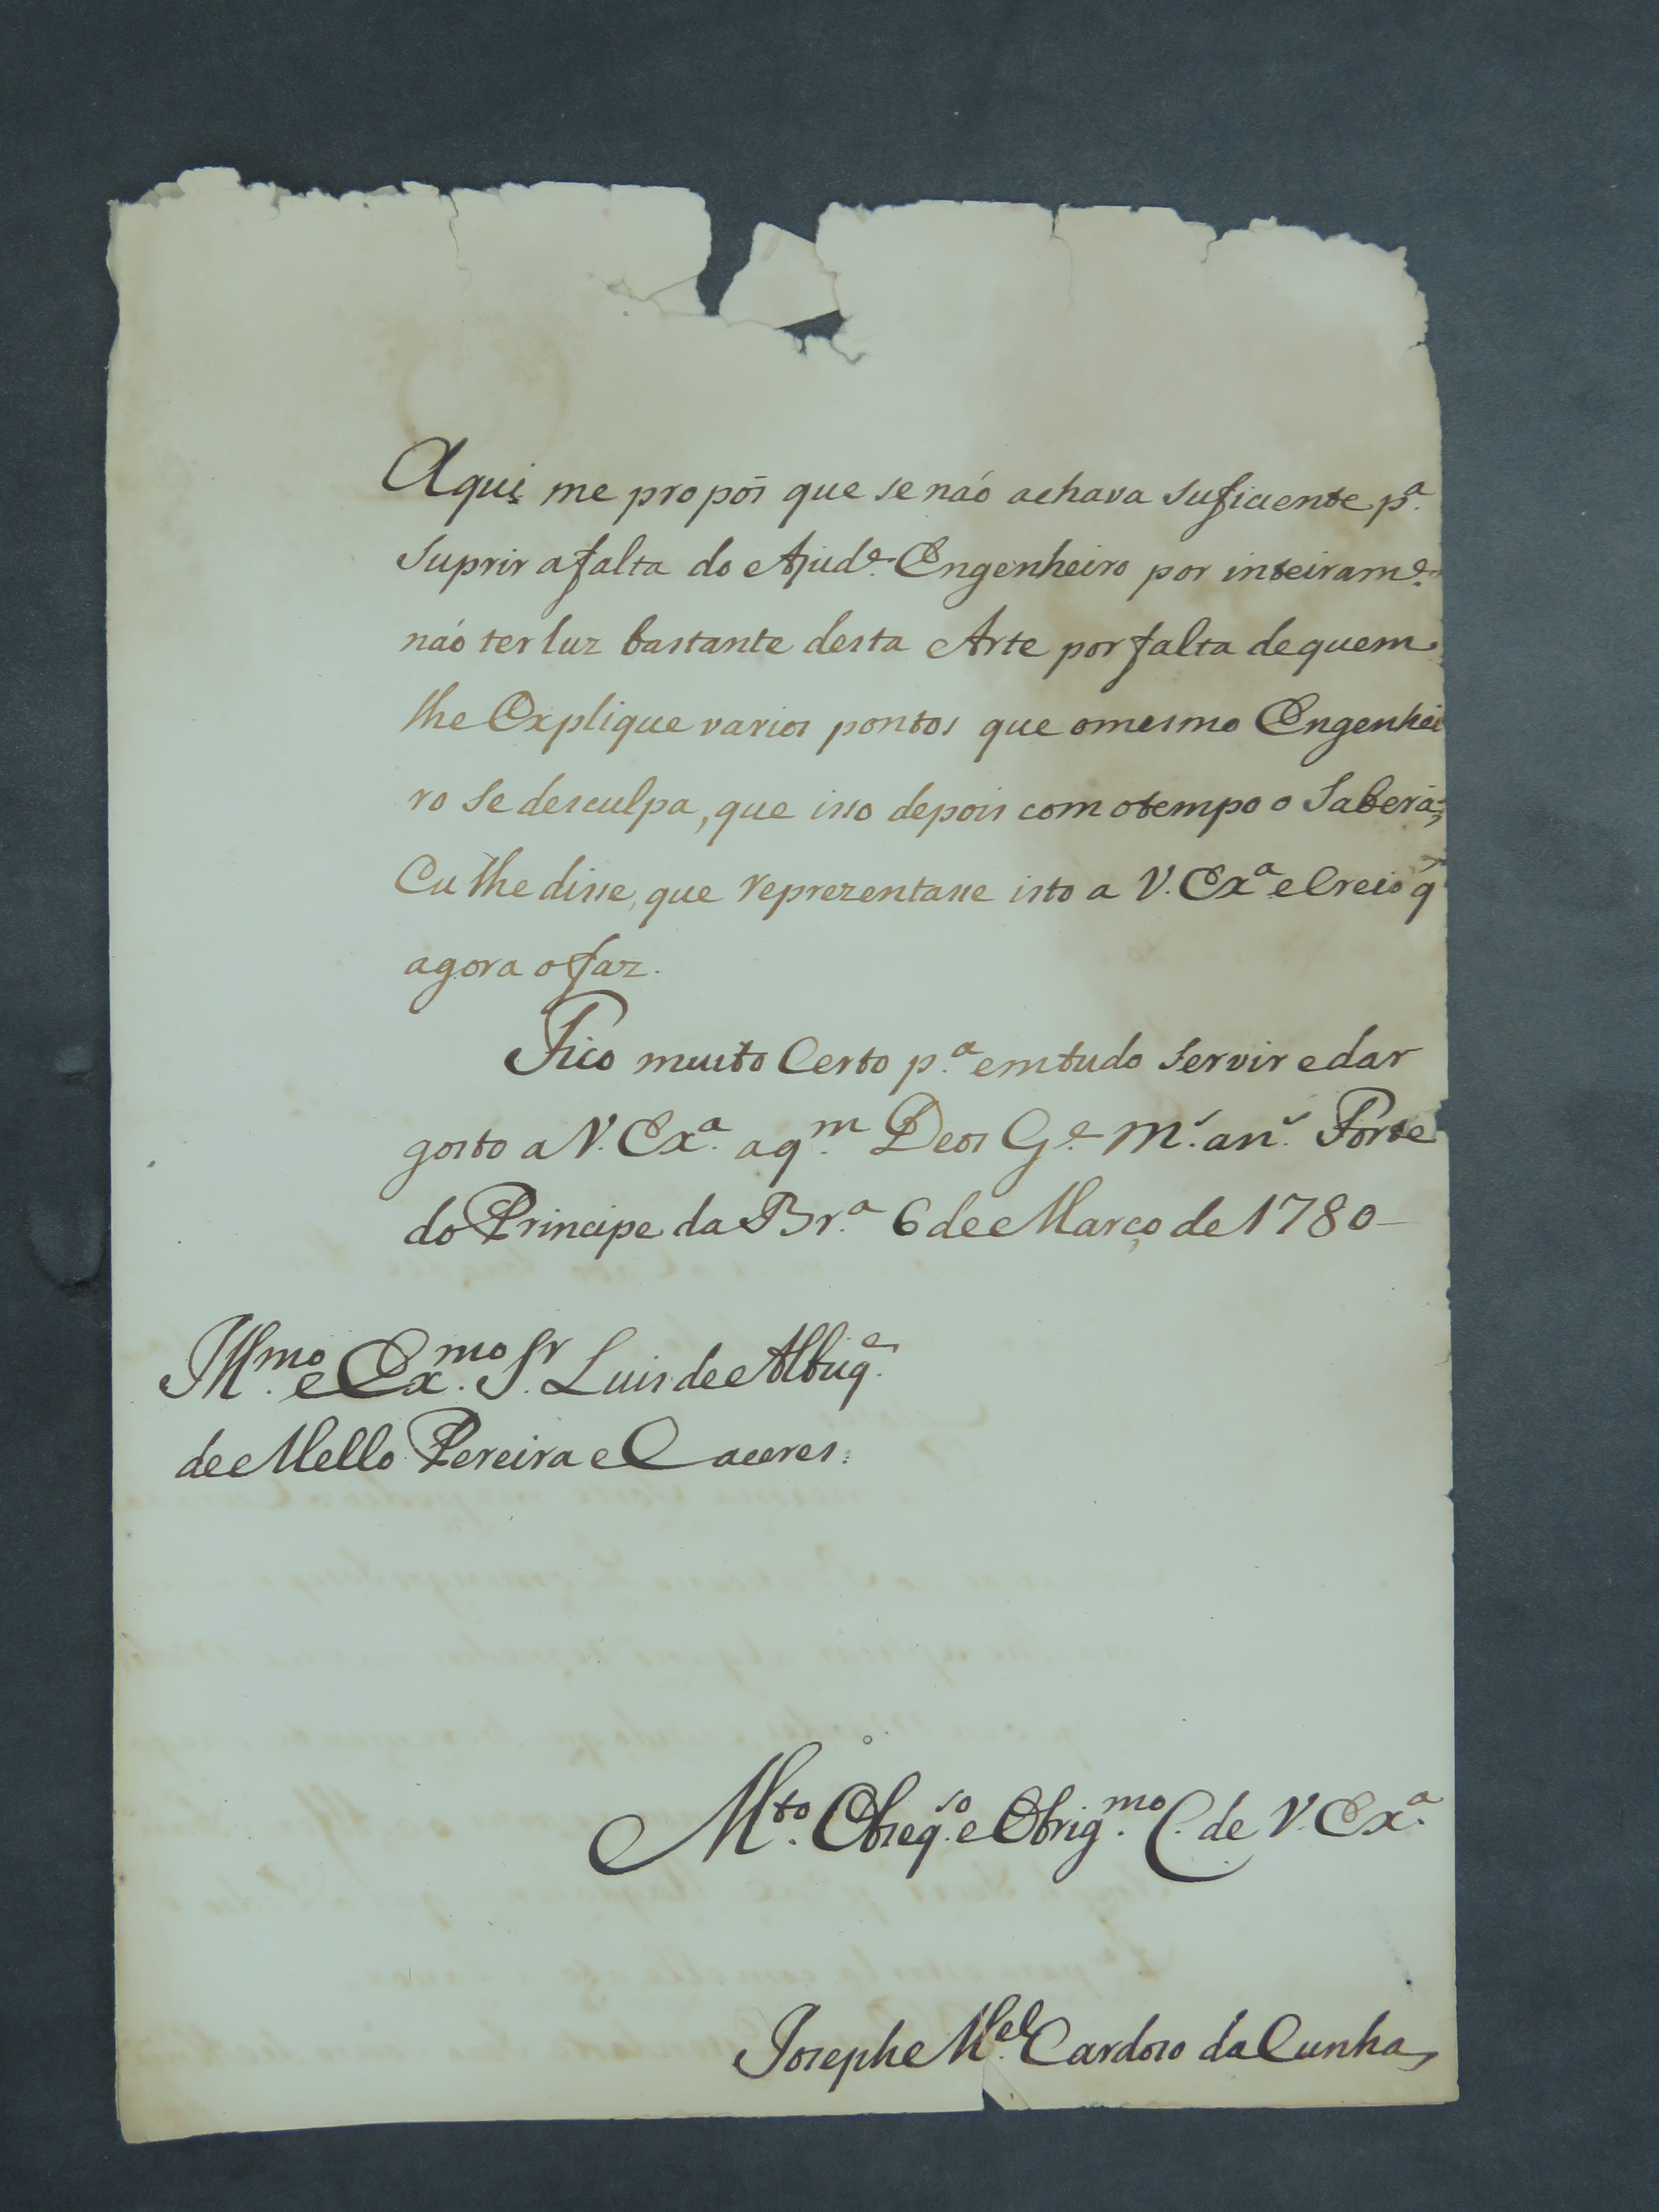 Aqui me propos que se não achava suficiente p.ª
suprir afalta do Ajud.e Engenheiro por inteiram.e
não ter luz bastante desta Arte por falta dequem
lhe Explique varios pontos que omesmo Engenhei
ro Se desculpa, que isso depois com otempo o Saberá;
Eu lhe disse, que reprezentasse isto a V. Ex.ª e Creio q̃
agora o faz.
Fico muito Certo p.ª emtudo Servir edar
gosto a V. Ex.ª aq.m Deos G.e M.s an.s Forte
do Principe da Br.ª 6 de Março de 1780
Ill.mo e Ex.mo S.r Luis de Albuq.e
de Mello Pereira e Caceres.
M.to Obseq.so e Obrig.mo C. de V. Ex.ª
Josephe M.el Cardoso da Cunha